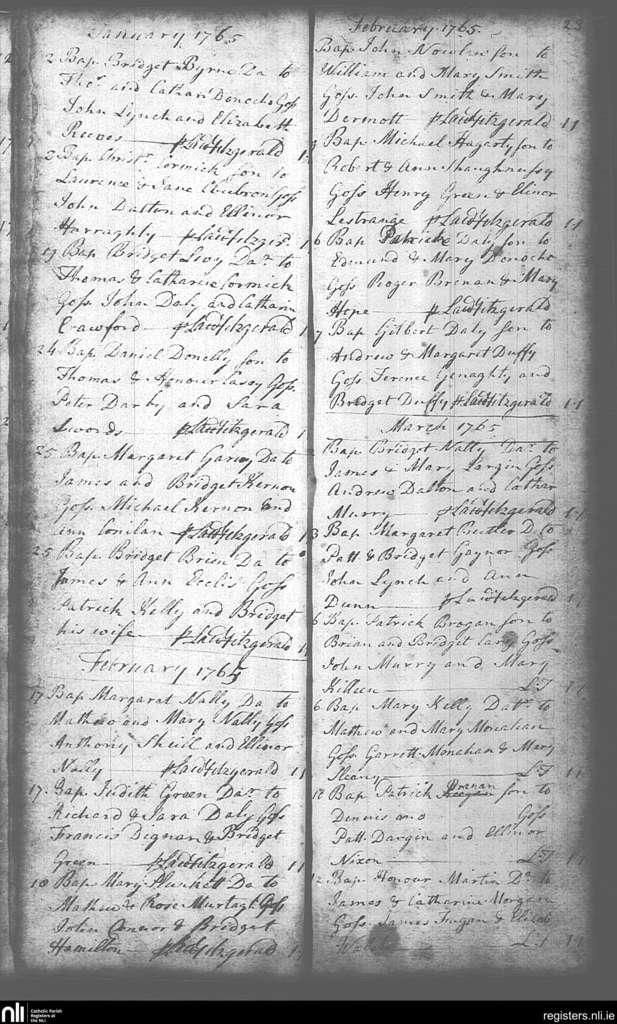 January 1765
2 Bap. Bridget Byrne Da to
Thos. and Cathan Donocho Goss
John Lynch and Elizabeth
Reeves
Bap. Christr. Cormick son to
Laurence & Jane Goss
John Dalton and Ellinor
Harraghty
19 Bap Bridget Da. to
Thomas & Catharine Cormick
Goss John Daly and Catharin
Crawford p Laudfitzgerald 1
24 Bap Daniel Donelly son to
Thomas & Honour Casey Goss
Peter Darby and Sara
Swords p Laudfitzgerald 1
25 Bap Margaret Garvy Da to
James and Bridget Kernon
Goss. Michael Kernon and
Conilan p Laudfitzgerald
25 Bap. Bridget Brien Da to
James & Ann Eccles Goss
Patrick Kelly and Bridget
his wife p Laudfitzgerald
February 1765
17 Bap Margarat Nally Da to
Mathew and Mary Nally Goss
Anthony Sheill and Ellinor
Nally p Laudfitzgerald 11
17. Bap. Judith Green Dar. to
Richard & Sara Daly Goss
Francis Dignan & Bridget
Green p Laudfitzgerald 11
10 Bap Mary Plunkett Da to
Mathew & Rose Murtagh Goss
John Connor & Bridget
Hamilton p Laudfitzgerald
February 1765. 23
Bap John son to
William and Mary Smith
Goss. John Smith & Mary
Dermott p Laudfitzgerald 11
Bap Michael Hagarty son to
Robert & Ann Shaughnessy
Goss Henry Green & Elinor
Lestrange p Laudfitzgerald 11
6 Bap Patrick Daly son to
Edmund & Mary Donocho
Goss Roger Brenan & Mary
Hope p Laudfitzgerald
7 Bap Gilbert Daly son to
Andrew & Margaret Duffy
Goss Terence Genaghty and
Bridget Duffy p Laudfitzgerald 11
March 1765
Bap Bridget Nally Dar. to
James & Mary Largin Goss
Andrew Dalton and Cathar
Murry p Laudfitzgerald 11
3 Bap Margaret Butler D. to
Patt & Bridget Gaynor Goss
John Lynch and Ann
Dunn p Laudfitzgerald 11
6 Bap. Patrick Brogan son to
Brian and Bridget Goss
John Murry and Mary
Killeen LF 11
6 Bap Mary Kelly Datr. to
Mathew and Mary Monahan
Goss Garrett Monahan & Mary
Sleany LF 11
12 Bap Patrick Branan son to
Dennis and Goss
Patt. Dargin and Ellinor
Nixon LF 11
12 Bap. Honour Martin Dr. to
James & Catharine Morgan
Goss James Fingan & Elizab
L.F 11
nli
Catholic Parish
Registers at
the NLI
registers.nli.ie